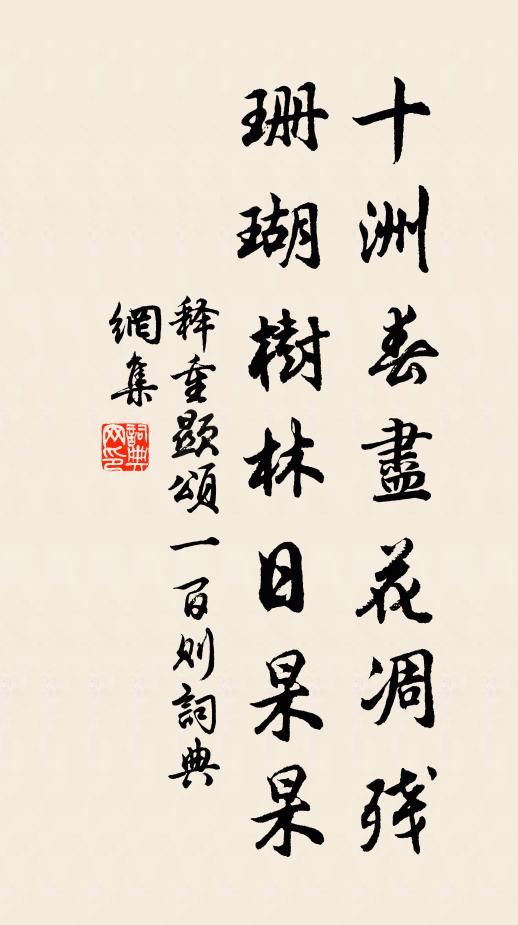 十洲春盡花凋残
珊瑚樹林日杲杲
释重顯頌一百则詞典
網集
詞典网印